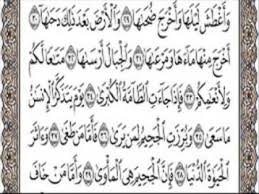 وَأَغْطَشَ لَيْلَهَا وَأَخْرَجَ ضُحَىٰهَا ٢٩ وَٱلْأَرْضَ بَعْدَ ذَٰلِكَ دَحَىٰهَا ٣٠
أَخْرَجَ مِنْهَا مَآءَهَا وَمَرْعَىٰهَا ٣١ وَٱلْجِبَالَ أَرْسَىٰهَا ٣٢ مَتَٰعًا لَّكُمْ
وَلِأَنْعَٰمِكُمْ ٣٣ فَإِذَا جَآءَتِ ٱلطَّآمَّةُ ٱلْكُبْرَىٰ ٣٤ يَوْمَ يَتَذَكَّرُ ٱلْإِنسَٰنُ
مَا سَعَىٰ ٣٥ وَبُرِّزَتِ ٱلْجَحِيمُ لِمَن يَرَىٰ ٣٦ فَأَمَّا مَن طَغَىٰ ٣٧ وَءَاثَرَ
ٱلْحَيَوٰةَ ٱلدُّنْيَا ٣٨ فَإِنَّ ٱلْجَحِيمَ هِىَ ٱلْمَأْوَىٰ ٣٩ وَأَمَّا مَنْ خَافَ